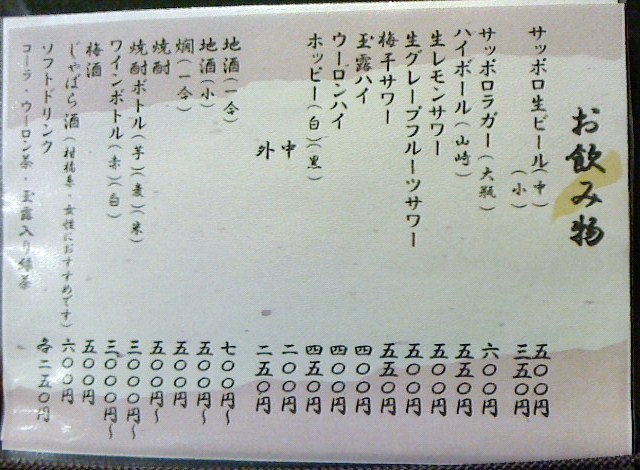 お飲み物
サッポロ生ビール(中) 五〇〇円
(小) 三五〇円
サッポロラガー(大瓶) 六〇〇円
ハイボール(山崎) 五五〇円
生レモンサワー 五〇〇円
生グレープフルーツサワー 五五〇円
梅干サワー 五五〇円
玉露ハイ 四〇〇円
ウーロンハイ 四〇〇円
ホッピー(白)(黒) 四五〇円
中 二〇〇円
外 二五〇円
地酒(一合) 七〇〇円〜
地酒(小) 五〇〇円〜
燗(一合) 五〇〇円
焼酎 五〇〇円〜
焼酎ボトル(芋)(麦)(米) 三〇〇〇円〜
ワインボトル(赤)(白) 三〇〇〇円〜
梅酒 五〇〇円
じゃばら酒(柑橘系・女性におすすめです) 六〇〇円
ソフトドリンク 各二五〇円
コーラ・ウーロン茶・玉露入り緑茶